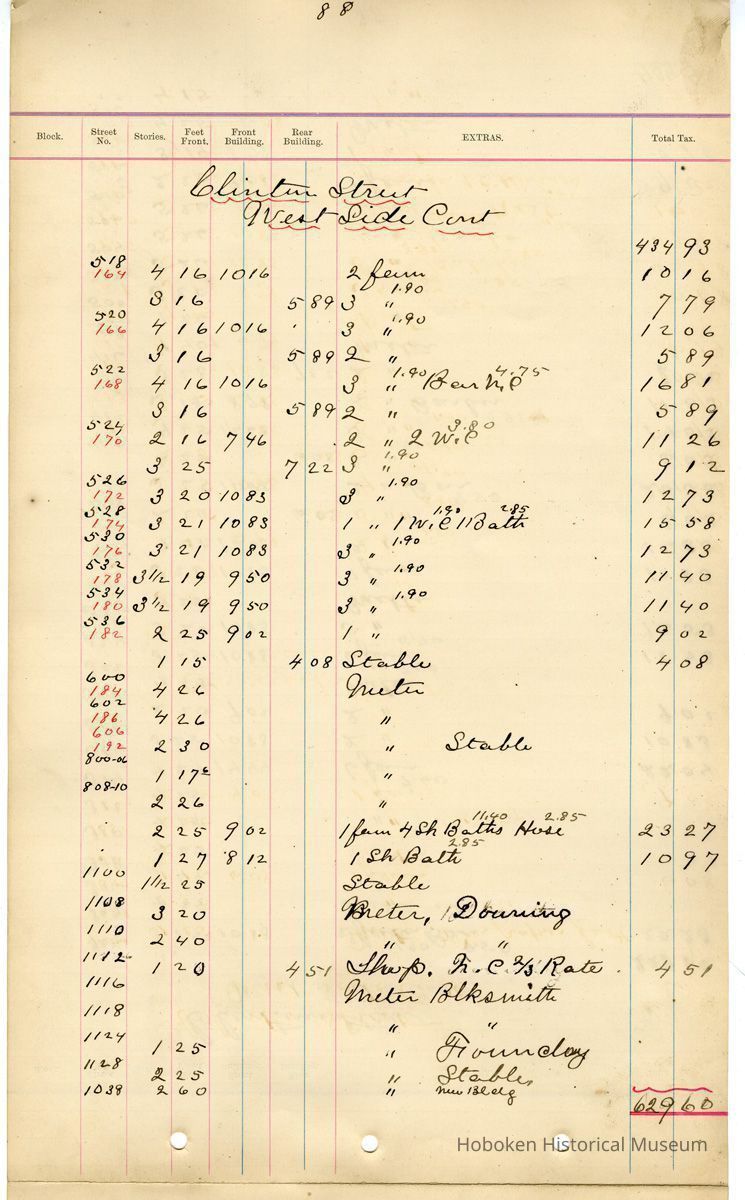 88
Block. Street No. Stories. Feet Front. Front Building. Rear Building. EXTRAS. Total Tax.
Clinton Street
West Side Cont
434 93
518
164 4 16 10 16 2 fam 10 16
1.90
3 16 5 89 3 " 7 79
520 1.90
166 4 16 10 16 3 " 12 06
3 16 5 89 2 " 5 89
522 1.90 4.75
168 4 16 10 16 3 " Bar W.C 16 81
3 16 5 89 2 " 5 89
524 3.80
170 2 16 7 46 2 " 2 W.C 11 26
1.90
3 25 7 22 3 " 9 12
526 1.90
172 3 20 10 83 3 " 12 73
528 1.90 2.85
174 3 21 10 83 1 " 1 W.C 1 Bath 15 58
530 1.90
176 3 21 10 83 3 " 12 73
532 1.90
178 3 1/2 19 9 50 3 " 11 40
534 1.90
180 3 1/2 19 9 50 3 " 11 40
536
182 2 25 9 02 1 " 9 02
1 15 4 08 Stable 4 08
600
184 4 26 Meter
602
186 4 26 "
606
192 2 30 " Stable
800-06
1 17 6 "
808-10
2 26 "
11.40 2.85
2 25 9 02 1 fam 4 Sh Baths Hose 23 27
2.85
1 27 8 12 1 Sh Bath 10 97
1100
1 1/2 25 Stable
1108
3 20 Meter, Downing
1110
2 40 " "
1112
1 20 4 51 Shop. 2/3 Rate 4 51
1116
Meter Blksmith
1118
" "
1124
1 25 " Foundry
1128
2 25 " Stables
1038 2 60 " New Bldg
629 60
Hoboken Historical Museum